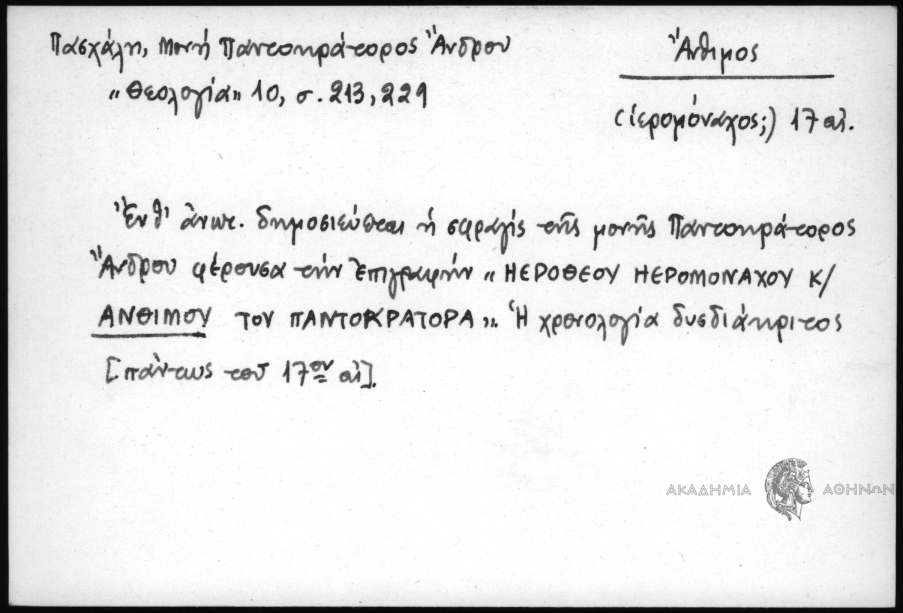 Πασχάλη, Μονή Παντοκράτορος Ἄνδρου
Ἄνθιμος
«Θεολογία» 10, σ. 213, 229
(ἱερομόναχος;) 17 αἰ.
Ἔνθ' ἀνωτ. δημοσιεύεται ἡ σφραγὶς τῆς μονῆς Παντοκράτορος
Ἄνδρου φέρουσα τὴν ἐπιγραφὴν « ΗΕΡΟΘΕΟΥ ΗΕΡΟΜΟΝΑΧΟΥ Κ/
ΑΝΘΙΜΟΥ ΤΟΥ ΠΑΝΤΟΚΡΑΤΟΡΑ ». Ἡ χρονολογία δυσδιάκριτος
[πάντως τοῦ 17ου αἰ].
ΑΚΑΔΗΜΙΑ ΑΘΗΝΩΝ